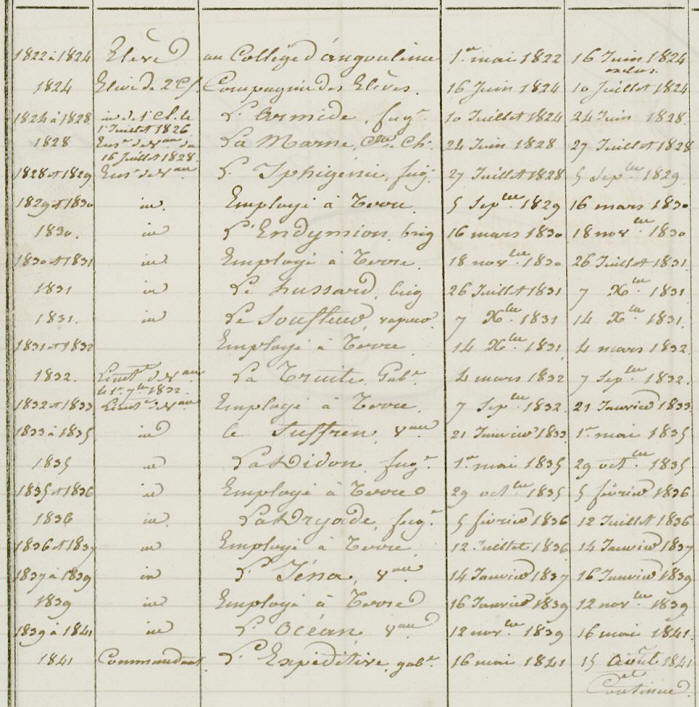 1822 à 1824 Elève au Collège d'angoulême 1er mai 1822 16 Juin 1824
exclus.
1824 Elève de 2e Cl. Compagnie des Elèves. 16 Juin 1824 10 Juillet 1824
1824 à 1828 id de 1e Cl. le L'Armide, frég. 10 Juillet 1824 24 Juin 1828.
1 Juillet 1826
1828 Ens. de Vau du La Marne, Ch. 24 Juin 1828 27 Juillet 1828
16 Juillet 1828.
1828 et 1829 Ens. de Vau L'Iphigénie, frég. 27 Juillet 1828 5 Sepbre 1829
1829 et 1830 id. Employé à Terre. 5 Sepbre 1829 16 mars 1830
1830. id L'Endymion, brig 16 mars 1830 18 novbre 1830
1830 et 1831 id Employé à Terre. 18 novbre 1830 26 Juillet 1831.
1831 id Le hussard, brig 26 Juillet 1831 7 Xbre 1831
1831. id Le Souffleur, vapeur. 7 Xbre 1831 14 Xbre 1831.
1831 et 1832 Employé à Terre 14 Xbre 1831 4 mars 1832.
1832. Lieut. de Vau La Truite, Gabe. 4 mars 1832 7 Sepbre 1832.
le 1er 7bre 1832.
1832 et 1833 Lieut. de Vau Employé à Terre. 7 Sepbre 1832. 21 Janvier 1833
1833 à 1835 id le Suffren, Vau 21 Janvier 1833. 1er mai 1835
1835 id La Didon, frég. 1er mai 1835 29 octbre 1835
1835 et 1836 id Employé à Terre 29 octbre 1835 5 février 1836
1836 id. La Dryade, frég. 5 février 1836 12 Juillet 1836
1836 et 1837 id Employé à Terre. 12 Juillet 1836 14 Janvier 1837
1837 à 1839 id L'Iéna, Vau 14 Janvier 1837 16 Janvier 1839
1839 id Employé à Terre 16 Janvier 1839 12 novbre 1839.
1839 à 1841 id L'Océan, Vau 12 novbre 1839 16 mai 1841.
1841 Commandant L'Expéditive, gabe. 16 mai 1841 15 Août 1841
et
Continue.